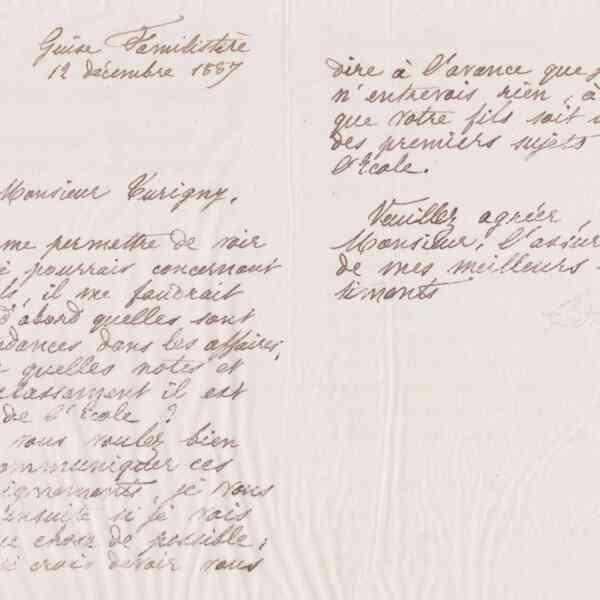 Guise Familistère
12 décembre 1887
Monsieur Turigny,
me permettre de voir
pourrais concernant
, il me faudrait
d'abord quelles sont
dances dans les affaires,
quelles notes et
classement il est
de l'École ?
vous voulez bien
communiquer ces
ignements, je vous
ensuite si je vois
que chose de possible ;
je crois devoir vous
dire à l'avance que j
n'entrevois rien, à
que votre fils soit
des premiers sujets
l'École.
Veuillez agréer,
Monsieur, l'assur
de mes meilleurs
timents